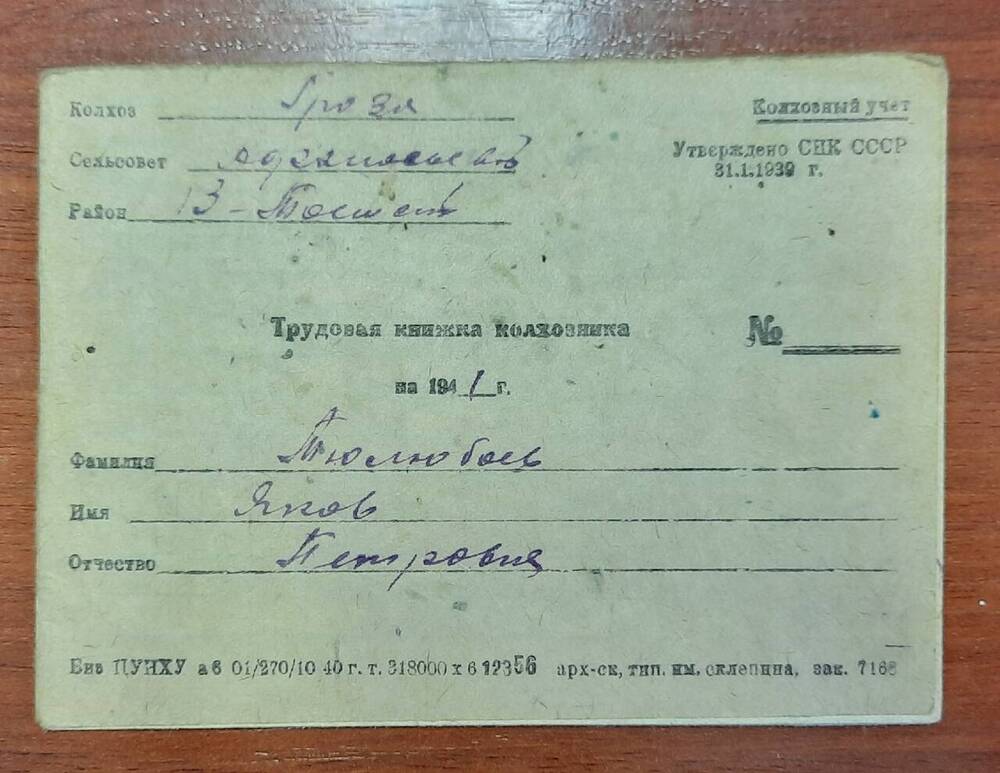 Колхоз Гроза
Колхозный учет
Сельсовет
Утверждено СНК СССР
31.1.1939 г.
Район В-Тоемск
Трудовая книжка колхозника №
на 1941 г.
Фамилия Тюлюбаев
Имя Яков
Отчество Петрович
Биз ЦУНХУ аб 01/270/10 40 г. т. 318000 х 6 12356 арх-ск, тип. им. склепина, зак. 7168